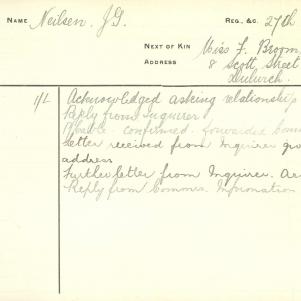 NAME Neilsen. J.G. REG. &C. 27th
NEXT OF KIN Miss F. Broom
ADDRESS 8 Scott Street
Dulwich
1/L Acknowledged asking relationship
Reply from Inquirer
confirmed. forwarded
letter received from Inquirer
address
further letter from Inquirer.
Reply from Commrs. Information